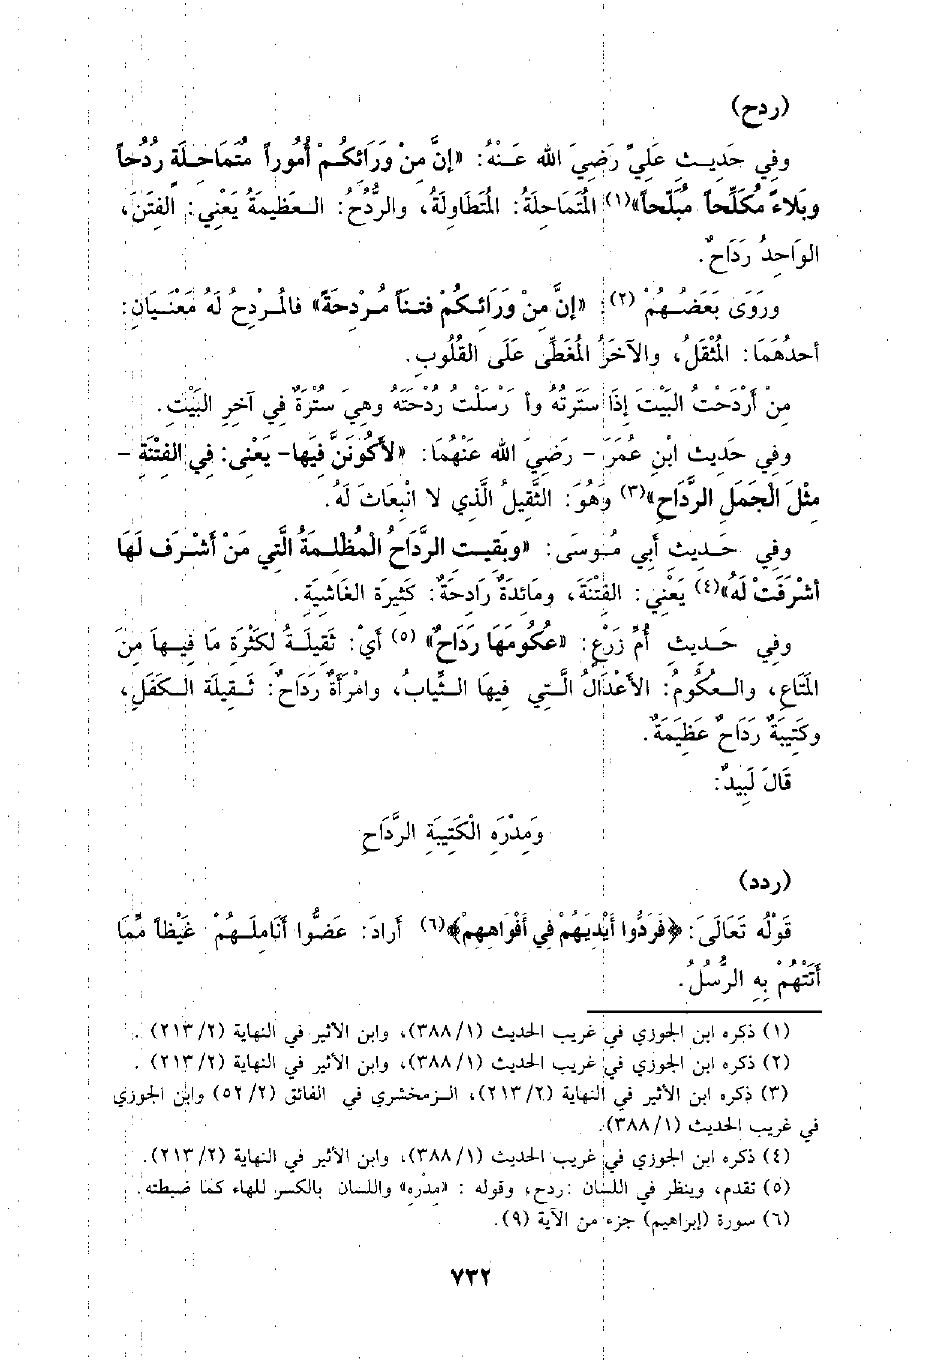 (ردح)
وفِي حَدِيثِ عَلِيٍّ رَضِيَ الله عَنْهُ: «إنَّ مِنْ وَرَائِكُمْ أُمُوراً مُتَمَاحِلَةً رُدُحاً
وبَلاءً مُكَلِّحاً مُبَلِّحاً»(١) المُتَمَاحِلَةُ: المُتَطَاوِلَةُ، والرُّدُحُ: العَظِيمَةُ يَعْنِي: الفِتَنَ،
الوَاحِدُ رَدَاحٌ.
ورَوَى بَعَضُهُمْ (٢): «إنَّ مِنْ وَرَائِكُمْ فتناً مُرْدِحَةً» فالمُرْدِحُ لَهُ مَعْنَيَانِ:
أحدُهُمَا: المُثْقَلُ، والآخَرُ المُغَطِّى عَلَى القُلُوبِ.
مِنْ أرْدَحْتُ البَيْتَ إذَا سَتَرتُهُ وأ رْسَلْتُ رُدْحَتَهُ وهِيَ سُتْرَةٌ فِي آخِرِ البَيْتِ.
وفِي حَدِيث ابْنِ عُمَرَ - رَضِيَ الله عَنْهُمَا: «لأَكُونَنَّ فِيَها- يَعْنِى: فِي الفِتْنَةِ -
مِثْلَ الْجَمَلِ الرَّدَاحِ»(٣) وهُوَ: الثَّقِيلُ الَّذِي لا انْبِعَاثَ لَهُ.
وفِي حَدِيثِ أبِي مُوسَى: «وبَقِيت الرَّدَاحُ الْمُظْلِمَةُ الَّتِي مَنْ أشْرَفَ لَهَا
أشْرَفَتْ لَهُ»(٤) يَعْنِي: الفِتْنَةَ، ومَائدَةٌ رَادِحَةٌ: كَثِيرَة الغَاشِيَةِ.
وفِي حَدِيثِ أُمِّ زَرْعٍ: «عُكُومُهَا رَدَاحٌ» (٥) أيْ: ثَقِيلَةُ لِكَثْرَةِ مَا فِيهاَ مِنَ
المَتَاعِ، والعُكُومُ: الأعْدَالُ الَّتِي فِيهَا الثِّيابُ، وامْرَأَةٌ رَدَاحٌ: ثَقِيلَة الكَفَلِ،
وكَتِيبَةٌ رَدَاحٌ عَظِيمَةٌ.
قَالَ لَبِيدٌ:
وَمِدْرَهِ الْكَتِيبَةِ الرَّدَاحِ
(ردد)
قَوْلُه تَعَالَى: ﴿فَرَدُّوا أيْدِيَهُمْ فِي أفْوَاهِهِمْ﴾(٦) أرادَ: عَضُّوا أنَامِلَهُمْ غَيْظاً مِّمَا
أتَتْهُمْ بِهِ الرُّسُلُ.
(١) ذكره ابن الجوزي في غريب الحديث (٣٨٨/١)، وابن الأثير في النهاية (٢١٣/٢) .
(٢) ذكره ابن الجوزي في غريب الحديث (٣٨٨/١)، وابن الأثير في النهاية (٢١٣/٢) .
(٣) ذكره ابن الأثير في النهاية (٢١٣/٢)، الزمخشري في الفائق (٥٢/٢) وابن الجوزي
في غريب الحديث (٣٨٨/١).
(٤) ذكره ابن الجوزي في غريب الحديث (٣٨٨/١)، وابن الأثير في النهاية (٢١٣/٢).
(٥) تقدم، وينظر في اللسان :ردح، وقوله : «مِدْرِه» واللسان بالكسر للهاء كما ضبطته.
(٦) سورة (إبراهيم) جزء من الآية (٩).
٧٣٢